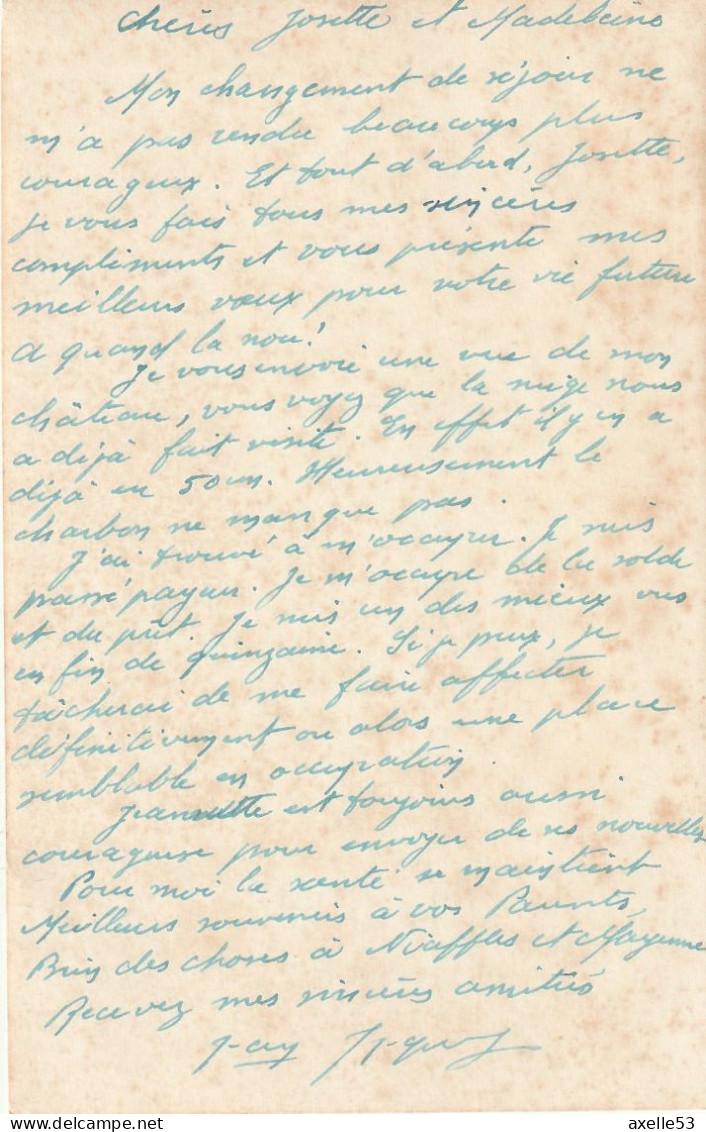 Chères Josette et Madeleine
Mon changement de séjour ne
m'a pas rendu beaucoup plus
courageux. Et tout d'abord, Josette,
je vous fais tous mes sincères
compliments et vous présente mes
meilleurs vœux pour votre vie future
a quand la noce!
Je vous envoie une vue de mon
château, vous voyez que la neige nous
a déjà fait visite. En effet il y en a
déjà eu 50cm. Heureusement le
charbon ne manque pas.
J'ai trouvé à m'occuper. Je suis
passé payeur. Je m'occupe de la solde
et du prêt. Je suis un des mieux vus
en fin de quinzaine. Si je peux, je
tâcherai de me faire affecter
définitivement ou alors une place
semblable en occupation.
Jeannette est toujours aussi
courageuse pour envoyer de ses nouvelles
Pour moi la santé se maintient
Meilleurs souvenirs à vos Parents,
Bien des choses à Niaffles et Mayenne
Recevez mes sincères amitiés
axelle53